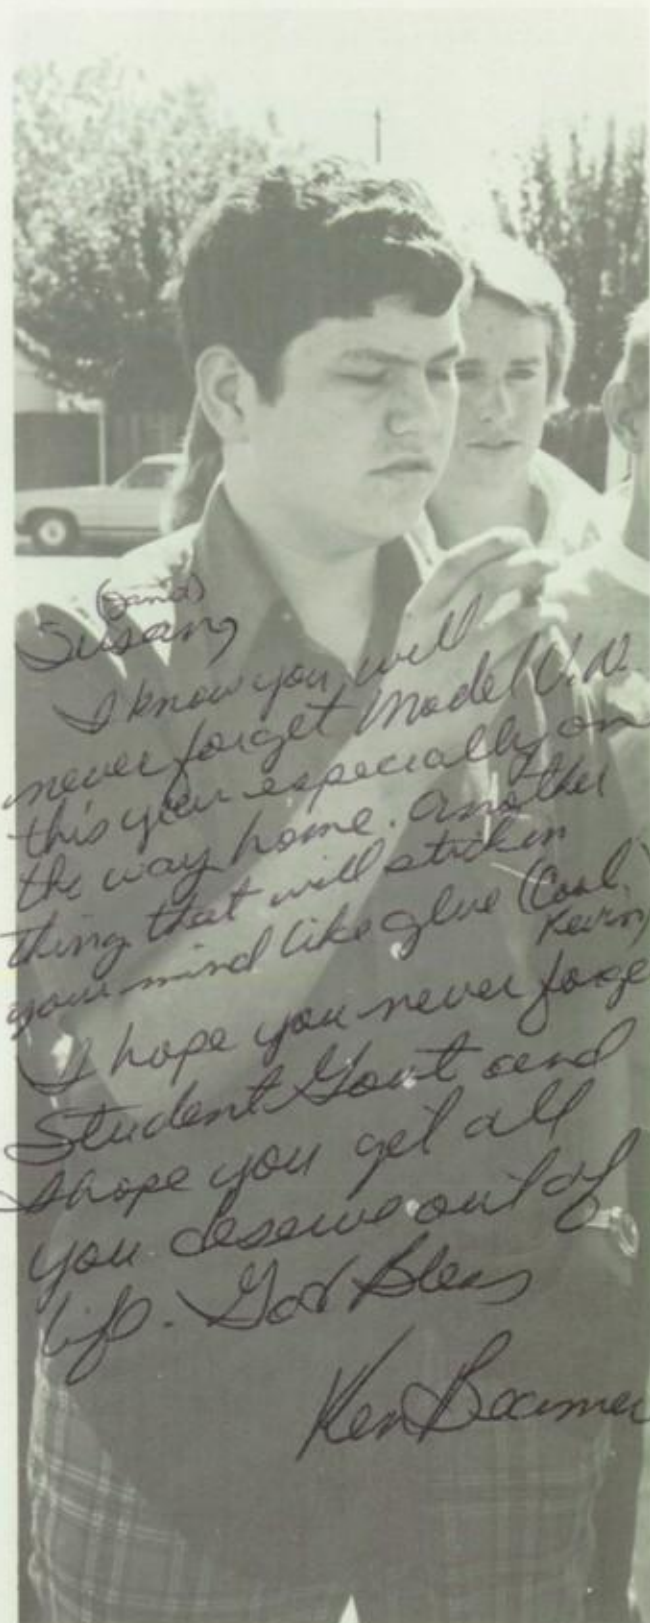 (David)
Susan,
I know you will
never forget Model U.N.
this year especially on
the way home. Another
thing that will stick in
your mind like glue (Cool
Kevin)
I hope you never forge
Student Govt and
I hope you get all
you deserve out of
life. God Bless
Ken Beamer